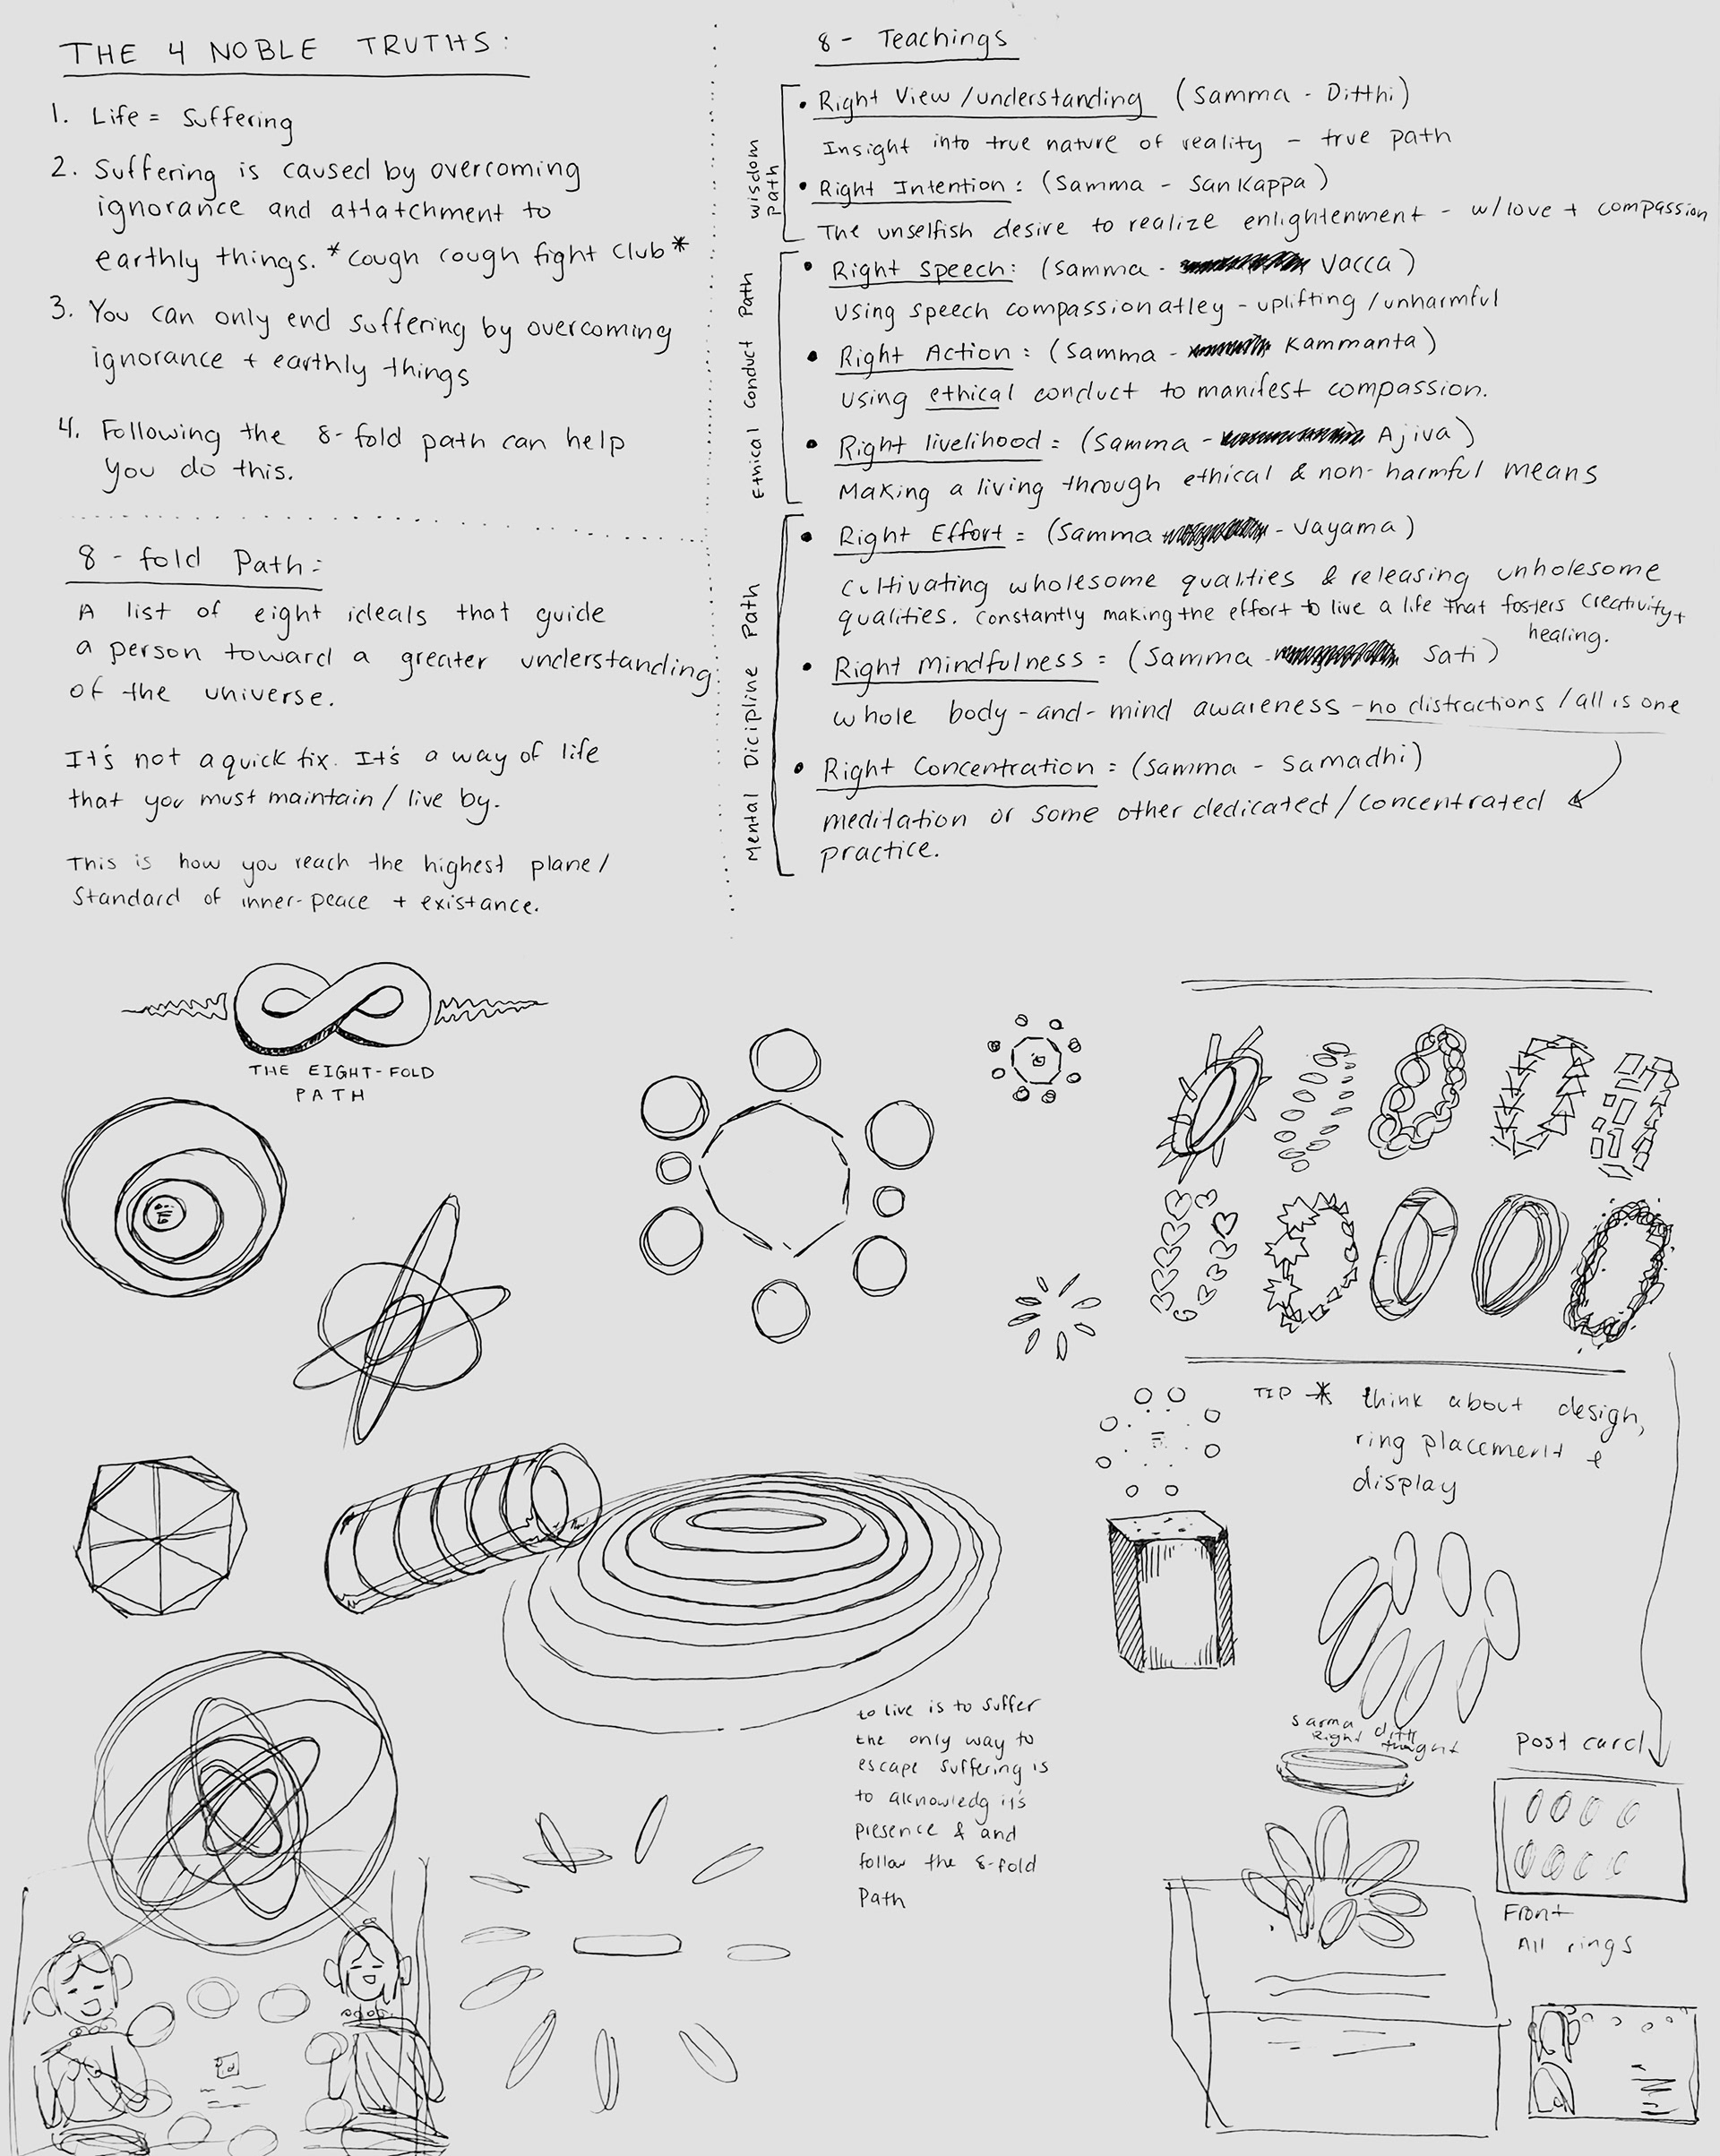 THE 4 NOBLE TRUTHS:
1. Life = Suffering
2. Suffering is caused by overcoming
ignorance and attatchment to
earthly things. *cough cough fight club*
3. You can only end suffering by overcoming
ignorance + earthly things
4. Following the 8-fold path can help
you do this.
8-fold Path:
A list of eight ideals that guide
a person toward a greater understanding
of the universe.
It's not a quick fix. It's a way of life
that you must maintain / live by.
This is how you reach the highest plane /
Standard of inner-peace + existance.
8 - Teachings
wisdom
path
• Right View / understanding (Samma - Ditthi)
Insight into true nature of reality - true path
• Right Intention: (Samma - Sankappa)
The unselfish desire to realize enlightenment - w/love + compassion
Ethical Conduct Path
• Right Speech: (Samma - Vacca)
Using speech compassionatley - uplifting / unharmful
• Right Action: (Samma - Kammanta)
using ethical conduct to manifest compassion.
• Right livelihood = (Samma - Ajiva)
Making a living through ethical & non-harmful means
Mental Dicipline Path
• Right Effort = (Samma - Vayama)
Cultivating wholesome qualities & releasing unholesome
qualities. Constantly making the effort to live a life that fosters creativity +
healing.
• Right Mindfulness = (Samma - Sati)
whole body-and-mind awareness - no distractions / all is one
• Right Concentration = (Samma - Samadhi)
meditation or some other dedicated / concentrated
practice.
THE EIGHT-FOLD
PATH
TIP * think about design,
ring placement &
display
to live is to suffer
the only way to
escape suffering is
to aknowledg it's
presence & and
follow the 8-fold
Path
Right
Post card
Front
All rings